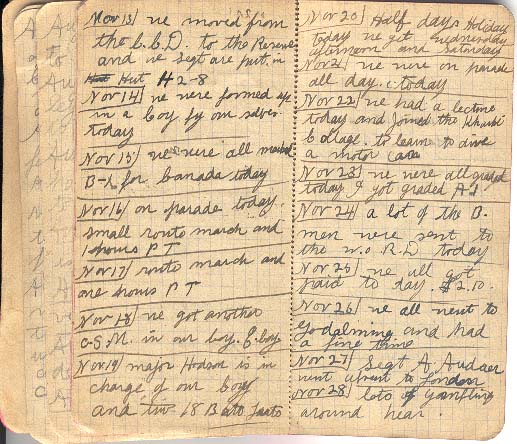 Nov 13/ we moved from
the C.C.D. to the Reserve
and we Segt are put in
Hut H2-8
Nov 14/ we were formed up
in a Coy by our selves
today
Nov 15/ we were all marked
B-1 for Canada today
Nov 16/ on parade today.
Small route march and
1 hours P T
Nov 17/ route march and
one hours P T
Nov 18/ we got another
C.S.M. in our Coy. E. Coy
Nov 19/ major Hodson is in
charge of our Coy
and 18
Nov 20/ Half days Holiday
today we get wednesday
afternoon and Saturday
Nov 21 we were on parade
all day. today
Nov 22/ we had a lecture
today and joined the Khaki
Collage. to learn to dive
a motor car
Nov 23/ we were all graded
today I got graded A2
Nov 24/ a lot of the B.
men were sent to
the W.O.R.D today
Nov 25/ we all got
paid to day. $2.10.
Nov 26/ we all went to
Godalming and had
a fine time
Nov 27/ Segt A.
went to London
Nov 28/ lots of gambling
around hear.